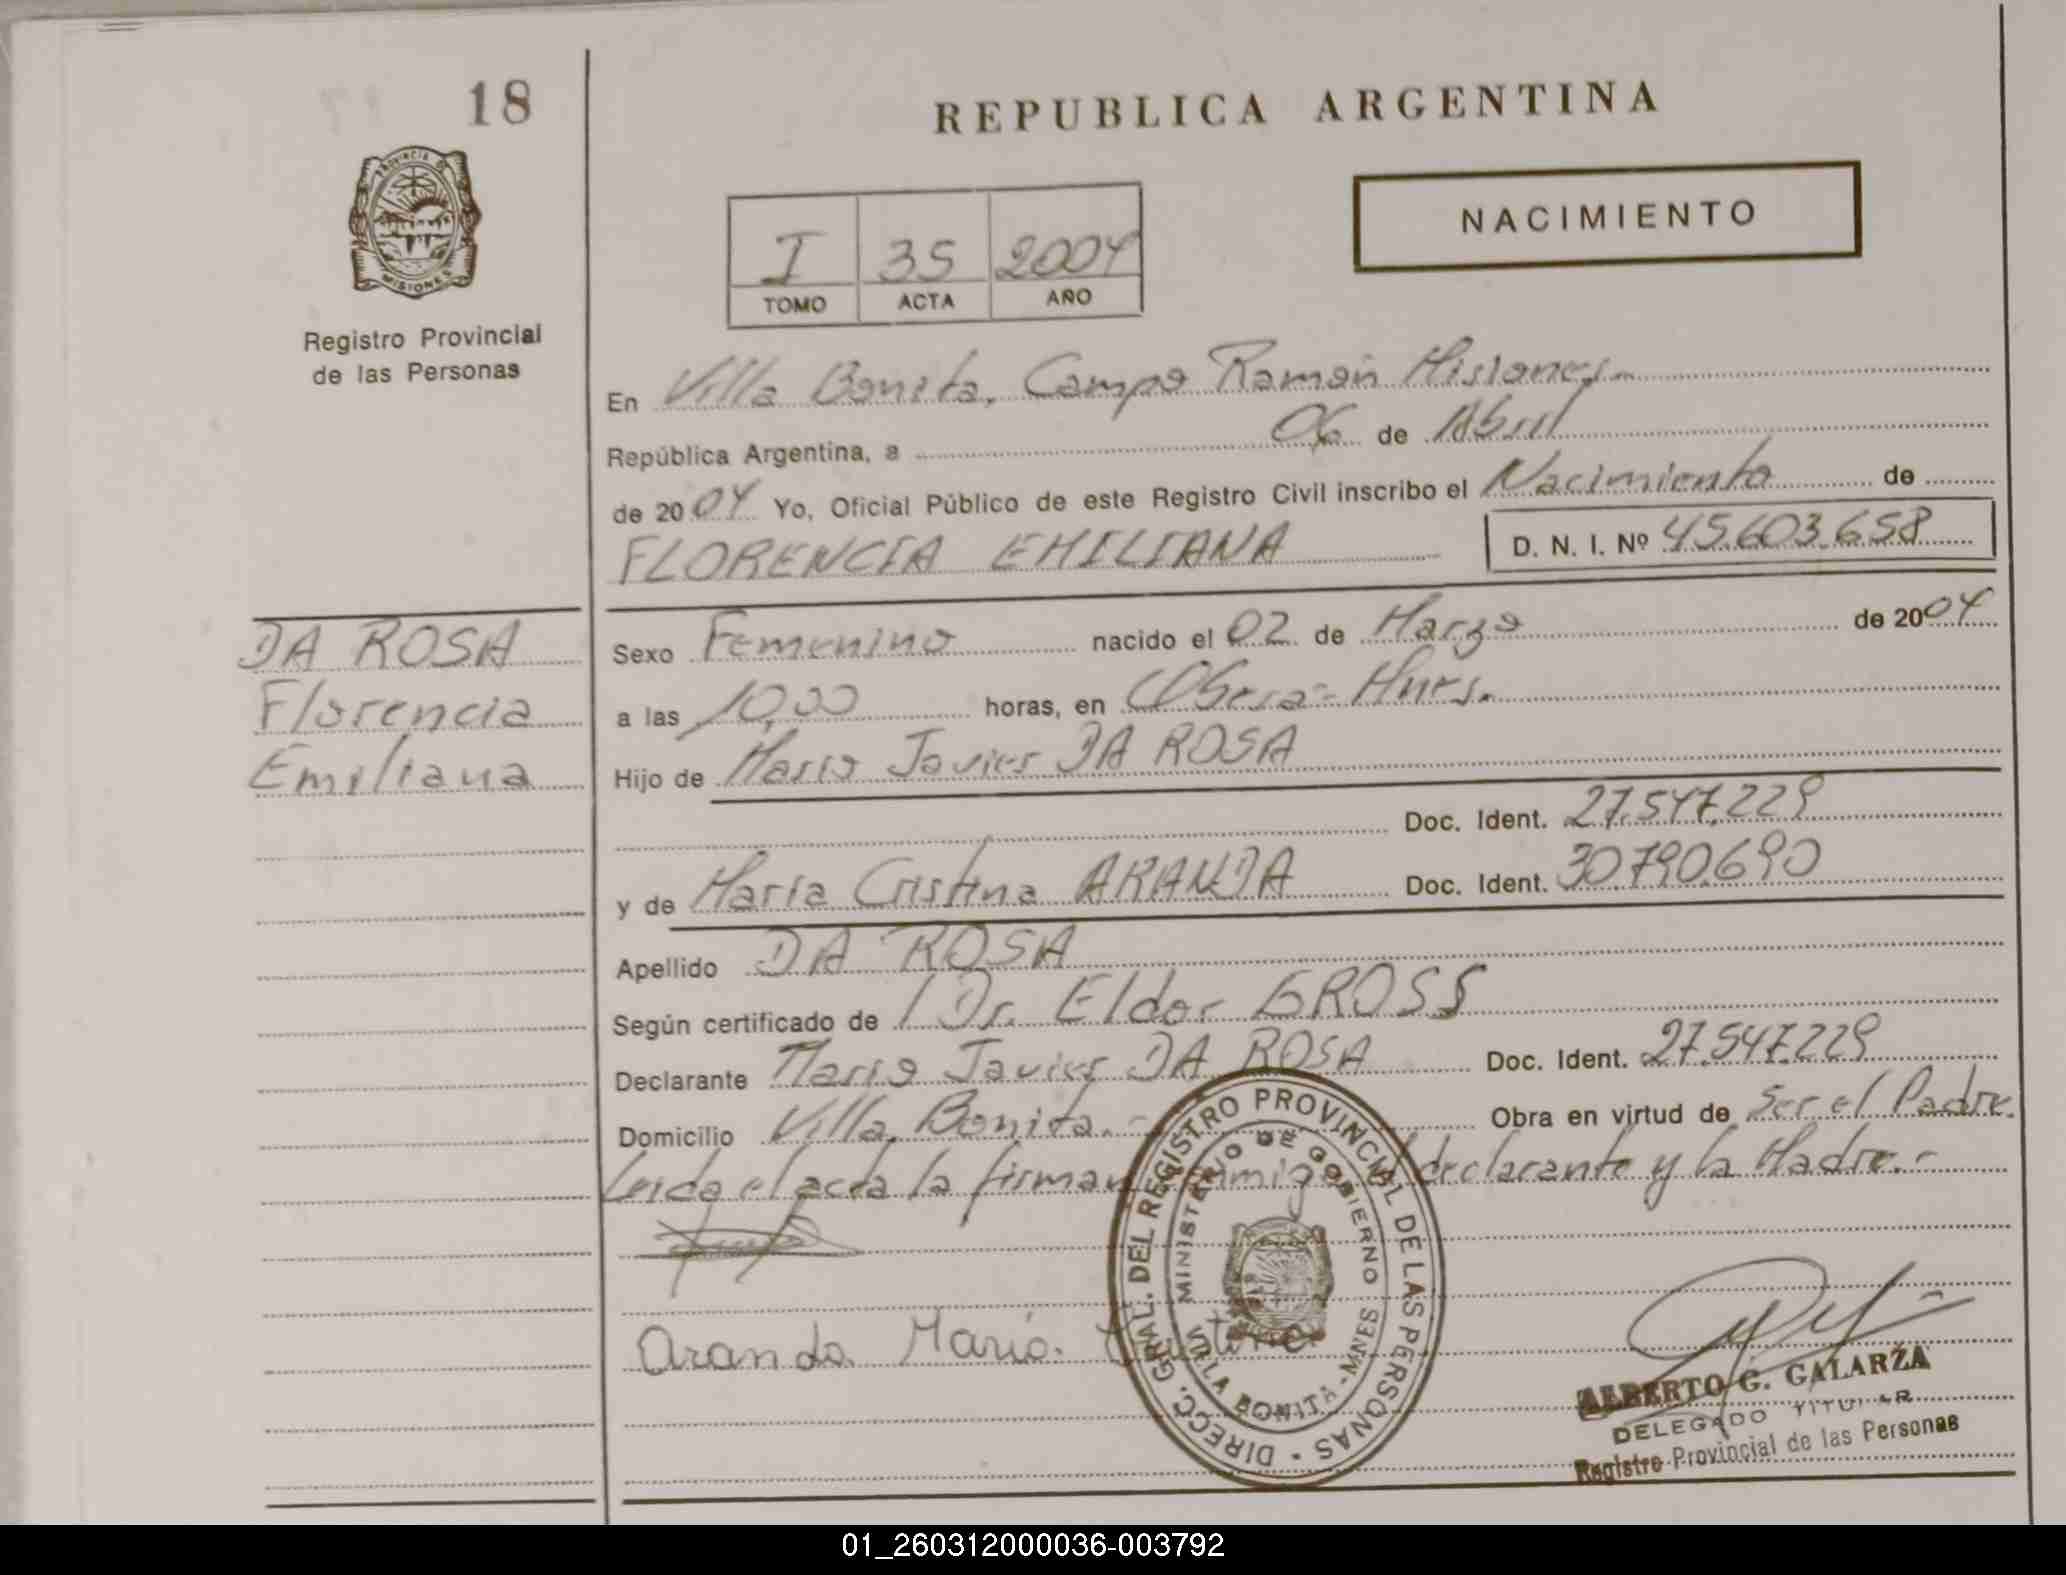 18
REPUBLICA ARGENTINA
NACIMIENTO
PROVINCIA DE
MISIONES
Registro Provincial
de las Personas
I 35 2004
TOMO ACTA AÑO
En Villa Bonita, Campo Ramón Misiones.-
República Argentina, a 06 de Abril
de 2004 Yo, Oficial Público de este Registro Civil inscribo el Nacimiento de
FLORENCIA EMILIANA D. N. I. Nº 45.603.658
DA ROSA
Florencia
Emiliana
Sexo Femenino nacido el 02 de Marzo de 2004
a las 10,00 horas, en Oberá - Mnes.
Hijo de Mario Javier DA ROSA
Doc. Ident. 27.547.229
y de María Cristina ARANDA Doc. Ident. 30.790.690
Apellido DA ROSA
Según certificado de Dr. Eldor GROSS
Declarante Mario Javier DA ROSA Doc. Ident. 27.547.229
Domicilio Villa Bonita.- Obra en virtud de Ser el Padre.
Leída el acta la firman conmigo el declarante y la Madre.-
Aranda María Cristina
DIRECC. GRAL. DEL REGISTRO PROVINCIAL DE LAS PERSONAS
MINISTERIO DE GOBIERNO
VILLA BONITA - MNES
ALBERTO G. GALARZA
DELEGADO TITULAR
Registro Provincial de las Personas
01_260312000036-003792